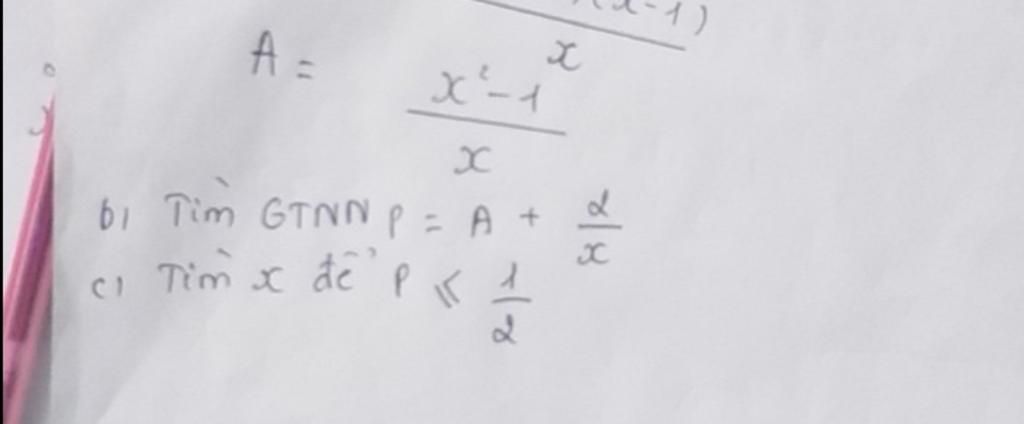 x-1)
A =
x
x²-1
x
b, Tìm GTNN P = A + 2/x
c, Tìm x để P ≤ 1/2